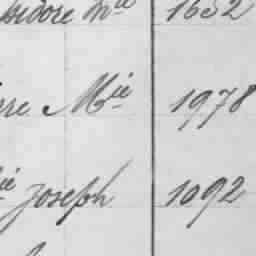 Isidore Mie 1652
re Mie 1978
ie Joseph 1092